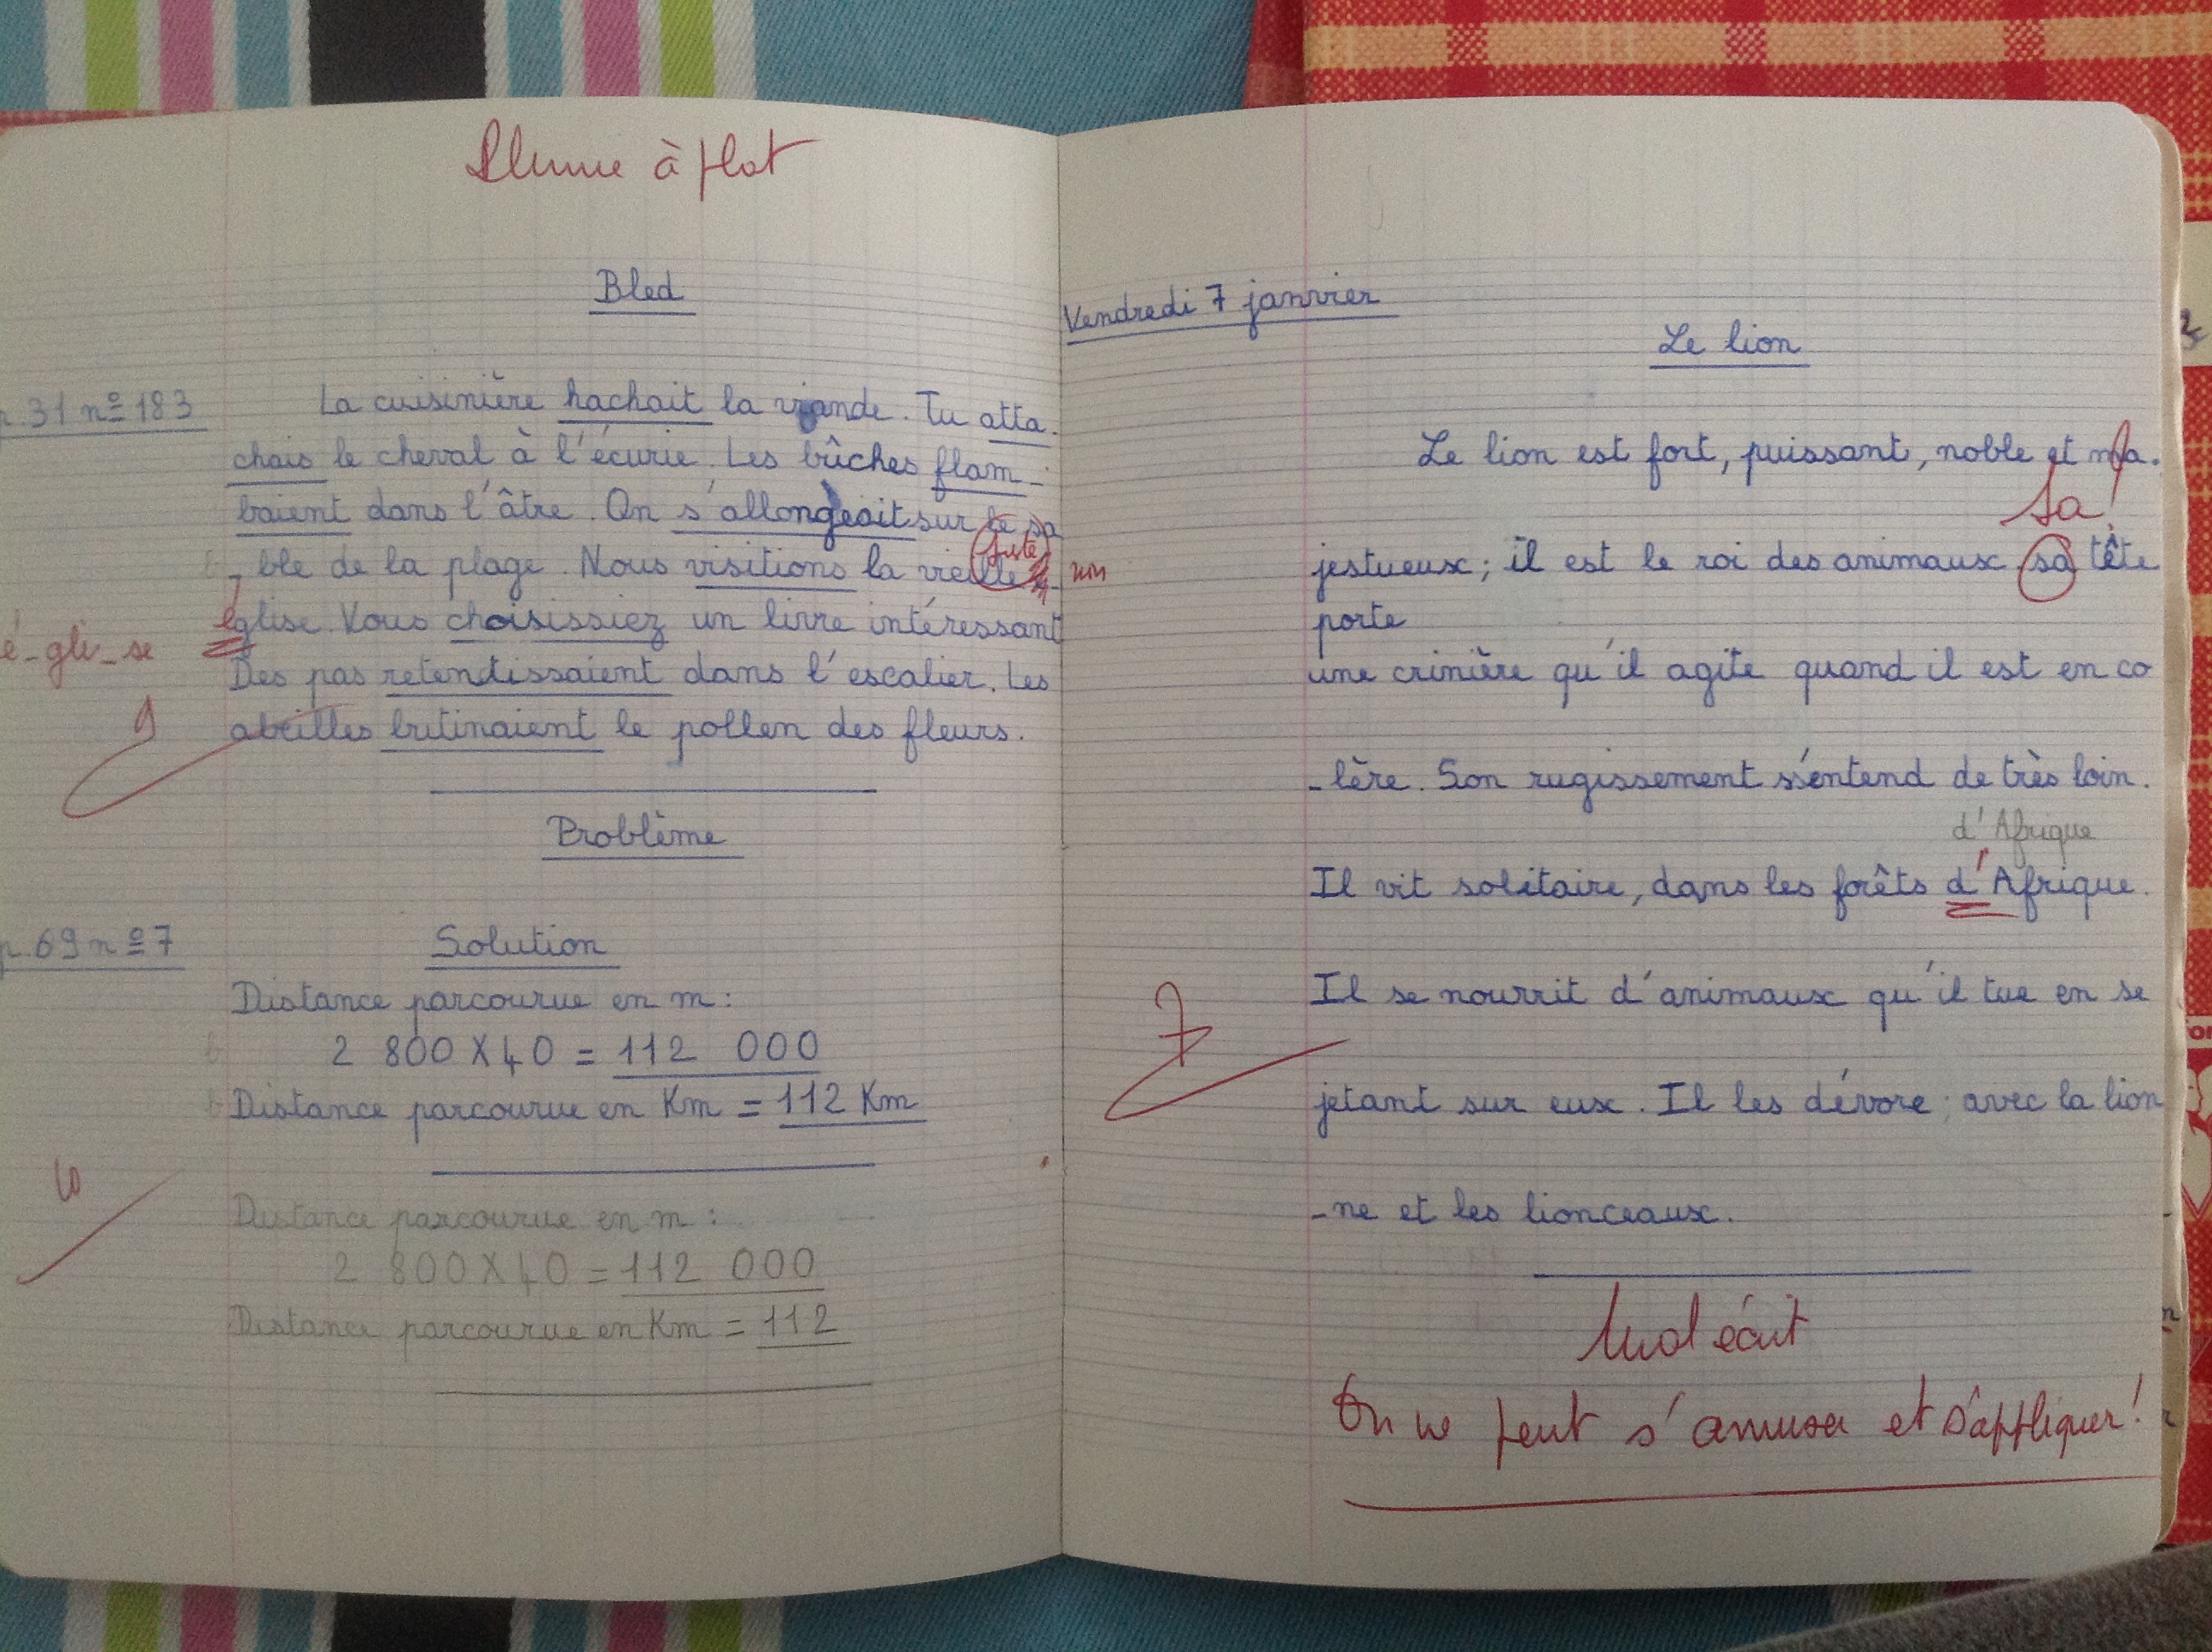 Plume à plat
Bled
p. 31 nº 183
La cuisinière hachait la viande. Tu atta-
chais le cheval à l'écurie. Les bûches flam-
baient dans l'âtre. On s'allongeait sur le sa
-ble de la plage. Nous visitions la vieille
église. Vous choisissiez un livre intéressant
é-gli-se
Des pas retendissaient dans l'escalier. Les
abeilles butinaient le pollen des fleurs.
9
Problème
p. 69 nº 7
Solution
Distance parcourue en m :
2 800 X 40 = 112 000
Distance parcourue en Km = 112 Km
10
Distance parcourue en m :
2 800 X 40 = 112 000
Distance parcourue en Km = 112
Vendredi 7 janvier
Le lion
Le lion est fort, puissant, noble et ma-
Sa
jestueux ; il est le roi des animaux. sa tête
porte
une crinière qu'il agite quand il est en co
-lère. Son rugissement s'entend de très loin.
d'Afrique
Il vit solitaire, dans les forêts d'Afrique.
Il se nourrit d'animaux qu'il tue en se
7
jetant sur eux. Il les dévore ; avec la lion
-ne et les lionceaux.
Mal écrit
On ne peut s'amuser et s'appliquer !